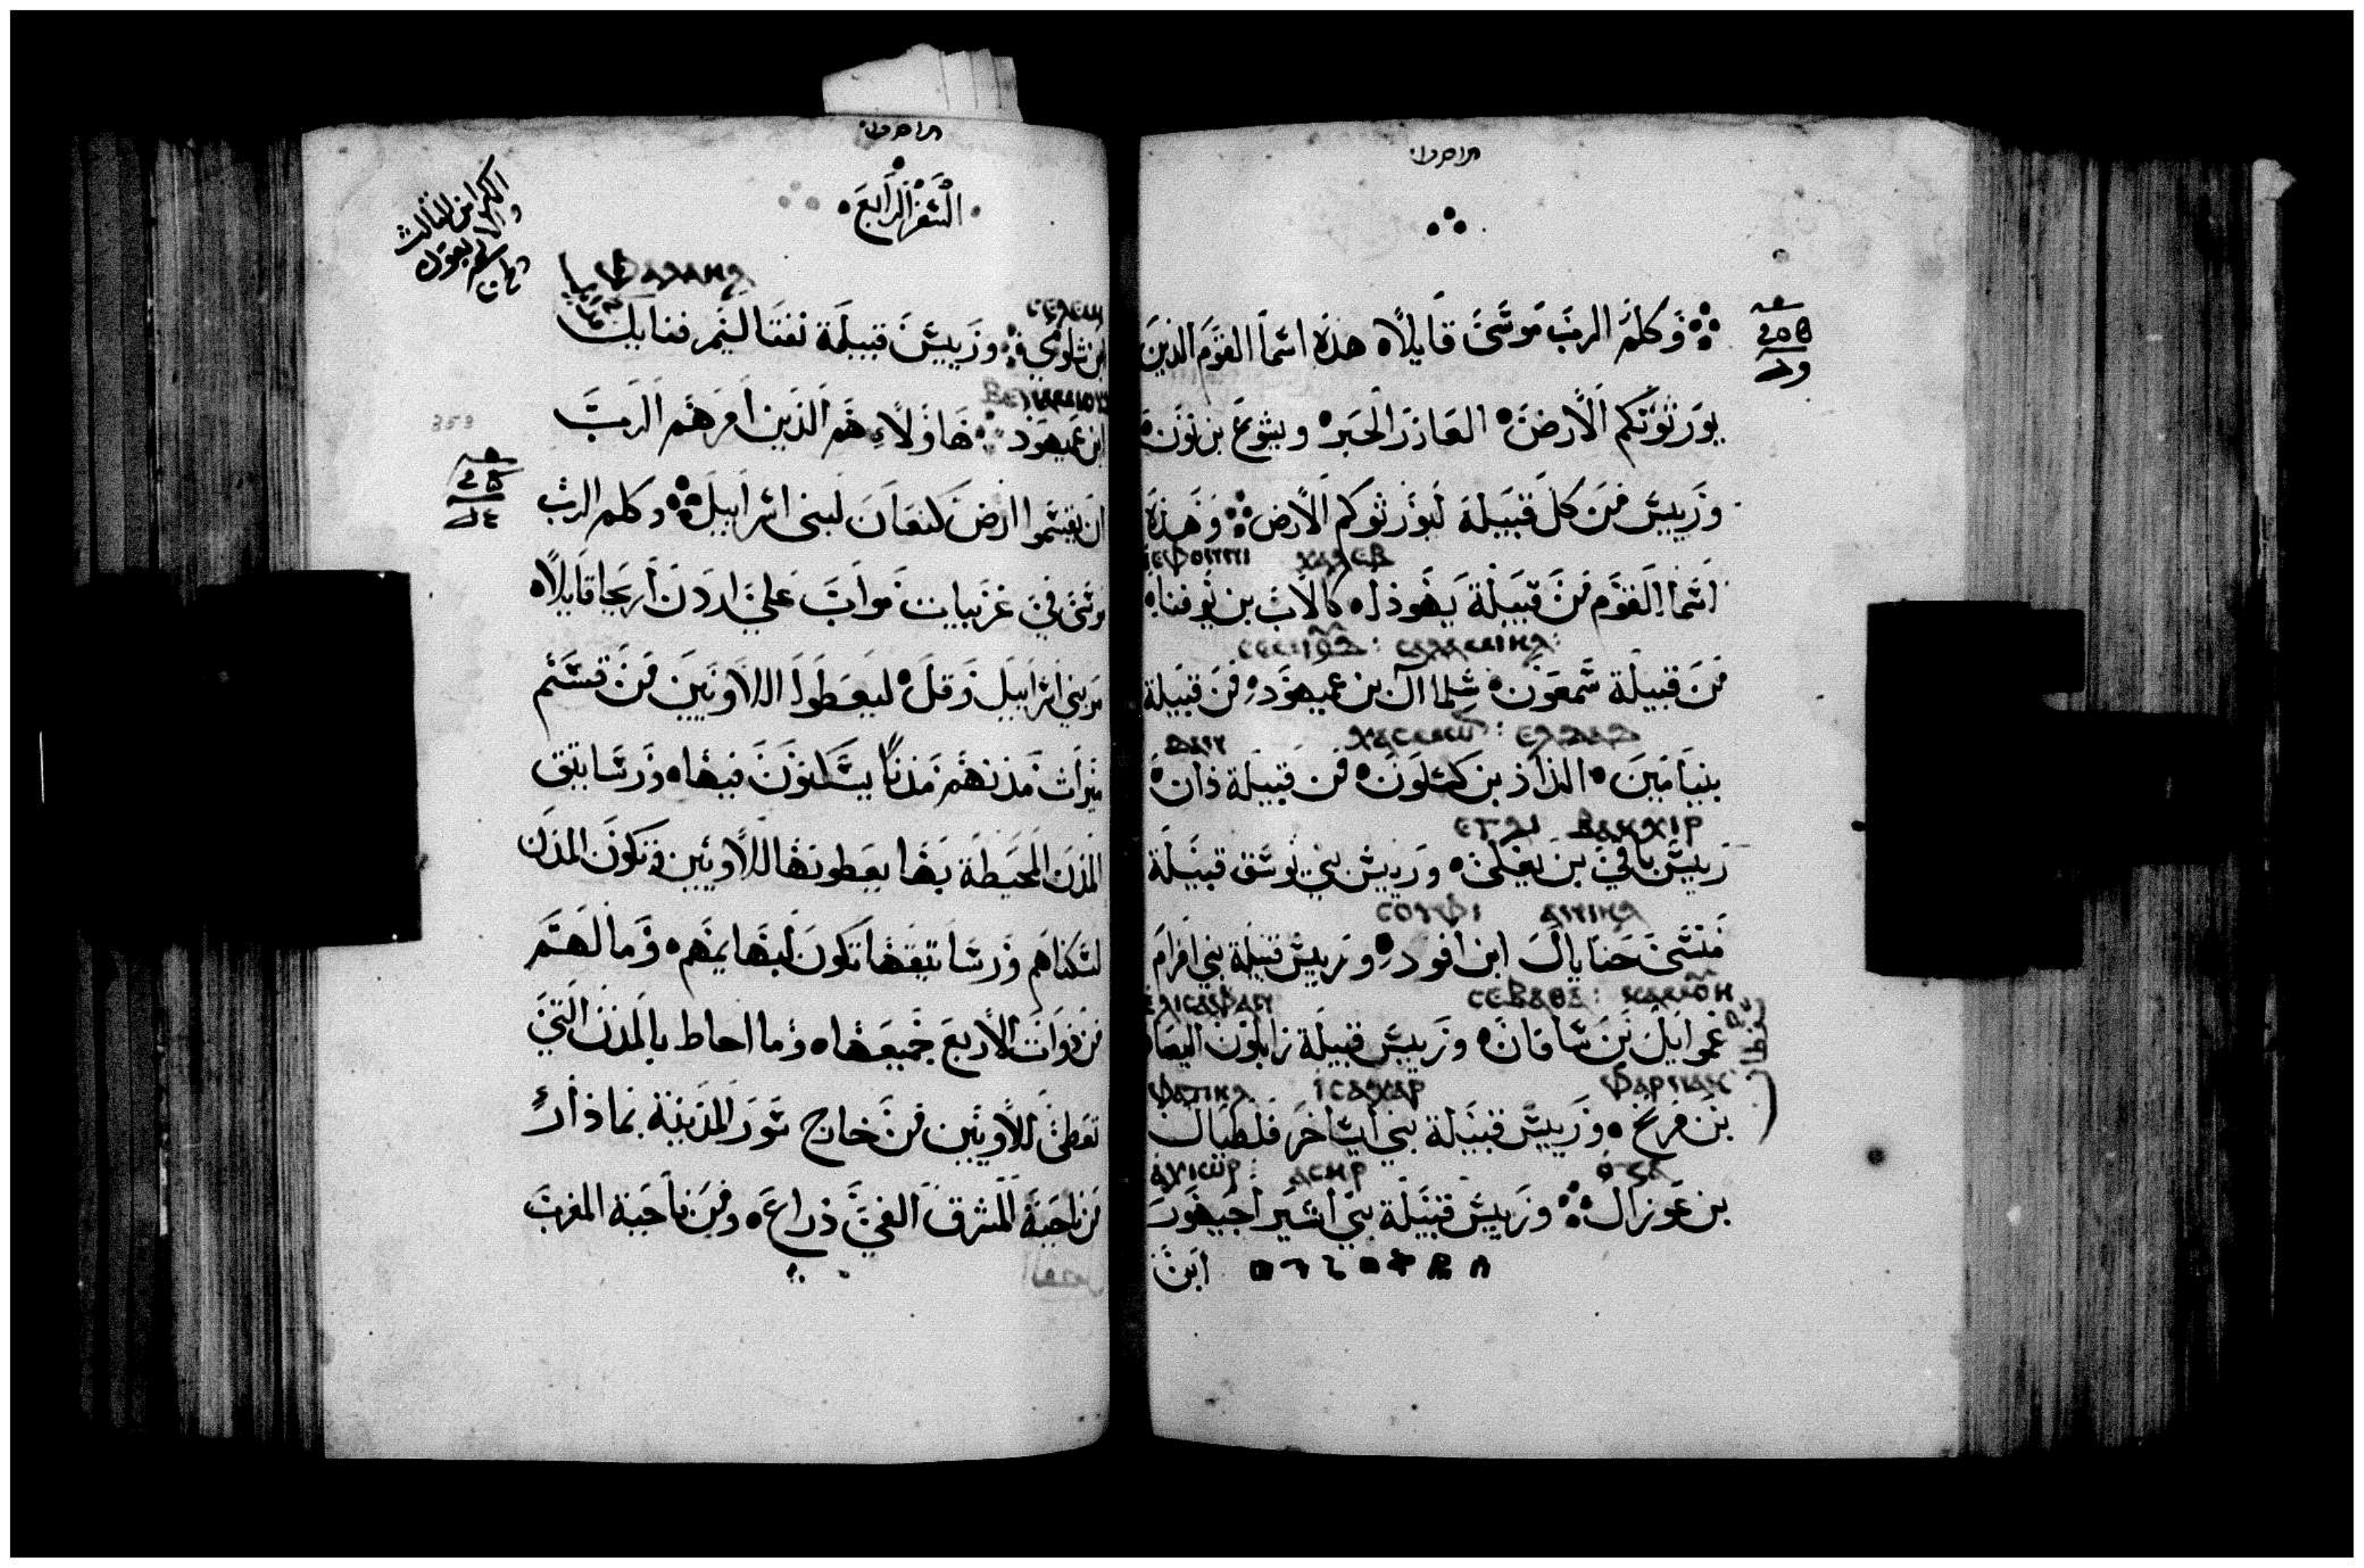 وكلم الرب موسى قايلاه هذه اسما القوم الذين
يورثوتكم الارض ه العازر الحبر ه ويشوع بن نون ه
وريس من كل قبيلة ليورثوكم الارض وهذه
ⲓⲉⲫⲟⲛⲛⲓ ⲭⲁⲗⲉⲃ
اسما القوم من قبيلة يهوذا ه كالاب بن يوفنا ه
من قبيلة شمعون ه شلماال بن عميهود ه من قبيلة
ⲇⲁⲛ
بنيامين ه الداد بن كسلون ه من قبيلة دان ه
ⲉⲅⲗⲓ ⲃⲁⲕⲭⲓⲣ
رييس باقي بن يغلى ه ورييس بني يوسف قبيلة
ⲥⲟⲩⲫⲓ ⲁⲛⲓⲏⲗ
منسى حنايال ابن افود ه ورييس قبيلة بني افرام
ⲉⲗⲓⲥⲁⲫⲁⲛ ⲥⲉⲃⲁⲑⲁ
غموايل بن سافان ه ورييس قبيلة زابلون اليصا
ⲓⲥⲁⲭⲁⲣ ⲫⲁⲣⲛⲁⲭ
بن فرنخ ه ورييس قبيلة بني ايساخر فلطيال
ⲁⲭⲓⲱⲣ ⲁⲥⲏⲣ ⲟⲍⲁ
بن عوزال وريس قبيلة بني اشير احيهور
ابن
السفر الرابع
ⲫⲁⲇⲁⲏⲗ
ⲥⲉⲗⲉⲙⲓ
بن شلومي وريس قبيلة نفتاليم فدايل
ابن عميهود هاولاء هم الذين امرهم الرب
ان يقسموا ارض كنعان لبني اسراييل وكلم الرب
موسى في غربيات مواب على اردن اريحا قايلاه
مر بني اسراييل وقل ه ليعطوا اللاويين من قسم
ميراث مدنهم مدنا يسكنون فيها ه ورساتيق
المدن المحيطة بها يعطونها للاويين وتكون المدن
لسكناهم ورساتيقها تكون لبهايمهم ه وما لهم
من ذوات الاربع جميعها ه وما احاط بالمدن التي
تعطى للاويين من خارج سور المدينة بما دار
من ناحية المشرق الفي ذراع ه ومن ناحية المغرب